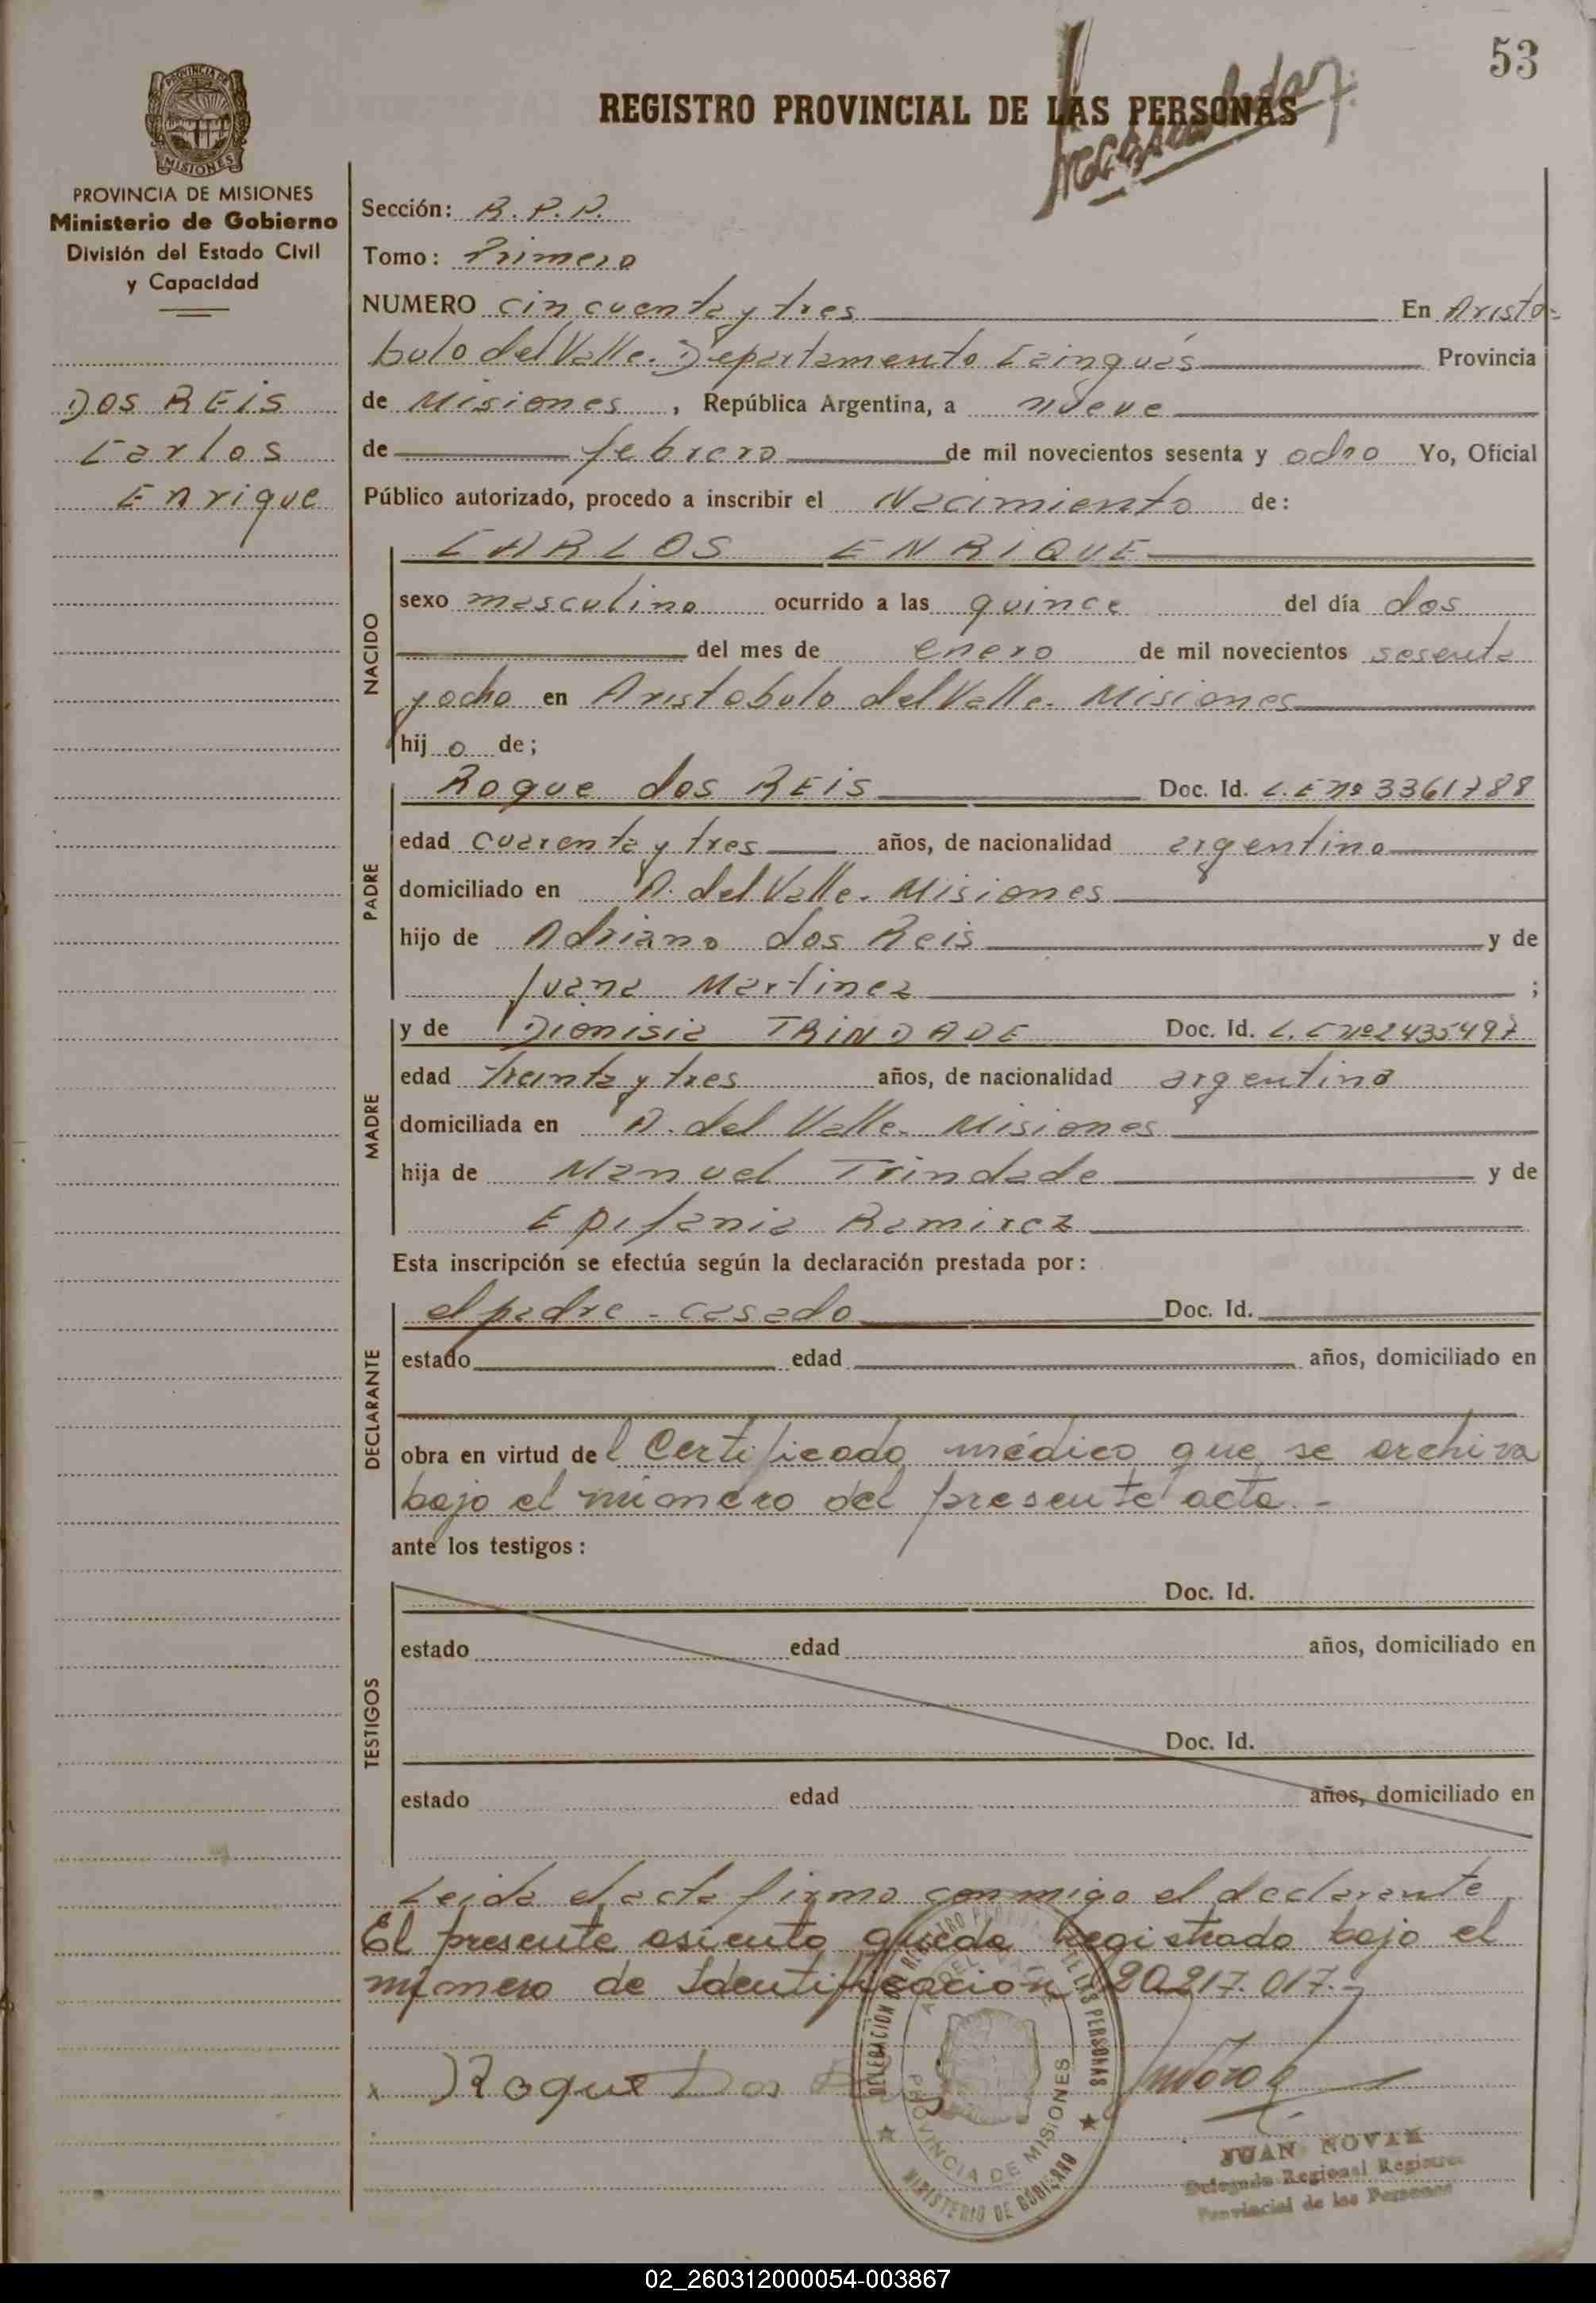 53
REGISTRO PROVINCIAL DE LAS PERSONAS
PROVINCIA DE
MISIONES
PROVINCIA DE MISIONES
Ministerio de Gobierno
División del Estado Civil
y Capacidad
DOS REIS
Carlos
Enrique
Sección: R.P.P.
Tomo: Primero
NUMERO cincuenta y tres En Aristo-
bulo del Valle. Departamento Cainguás Provincia
de Misiones, República Argentina, a nueve
de febrero de mil novecientos sesenta y ocho Yo, Oficial
Público autorizado, procedo a inscribir el Nacimiento de:
NACIDO
CARLOS ENRIQUE
sexo masculino ocurrido a las quince del día dos
del mes de enero de mil novecientos sesenta
y ocho en Aristobulo del Valle. Misiones
hijo de;
PADRE
Roque dos REIS Doc. Id. L.E nº 3361788
edad cuarenta y tres años, de nacionalidad argentina
domiciliado en A. del Valle. Misiones
hijo de Adriano dos Reis y de
Juana Martinez ;
MADRE
y de Dionisia TRINDADE Doc. Id. L.C nº 2435497
edad treinta y tres años, de nacionalidad argentina
domiciliada en A. del Valle. Misiones
hija de Manuel Trindade y de
Epifania Ramirez
Esta inscripción se efectúa según la declaración prestada por:
DECLARANTE
el padre - casado Doc. Id.
estado edad años, domiciliado en
obra en virtud del Certificado médico que se archiva
bajo el número del presente acta.-
ante los testigos:
TESTIGOS
Doc. Id.
estado edad años, domiciliado en
Doc. Id.
estado edad años, domiciliado en
Leida el acta firma conmigo el declarante
El presente asiento queda Registrado bajo el
número de Identificación 20.217.017.-
x Roque Dos
DELEGACION DEL REGISTRO PROVINCIAL DE LAS PERSONAS
PROVINCIA DE MISIONES
MINISTERIO DE GOBIERNO
JUAN NOVAK
Delegado Regional Registro
Provincial de las Personas
02_260312000054-003867